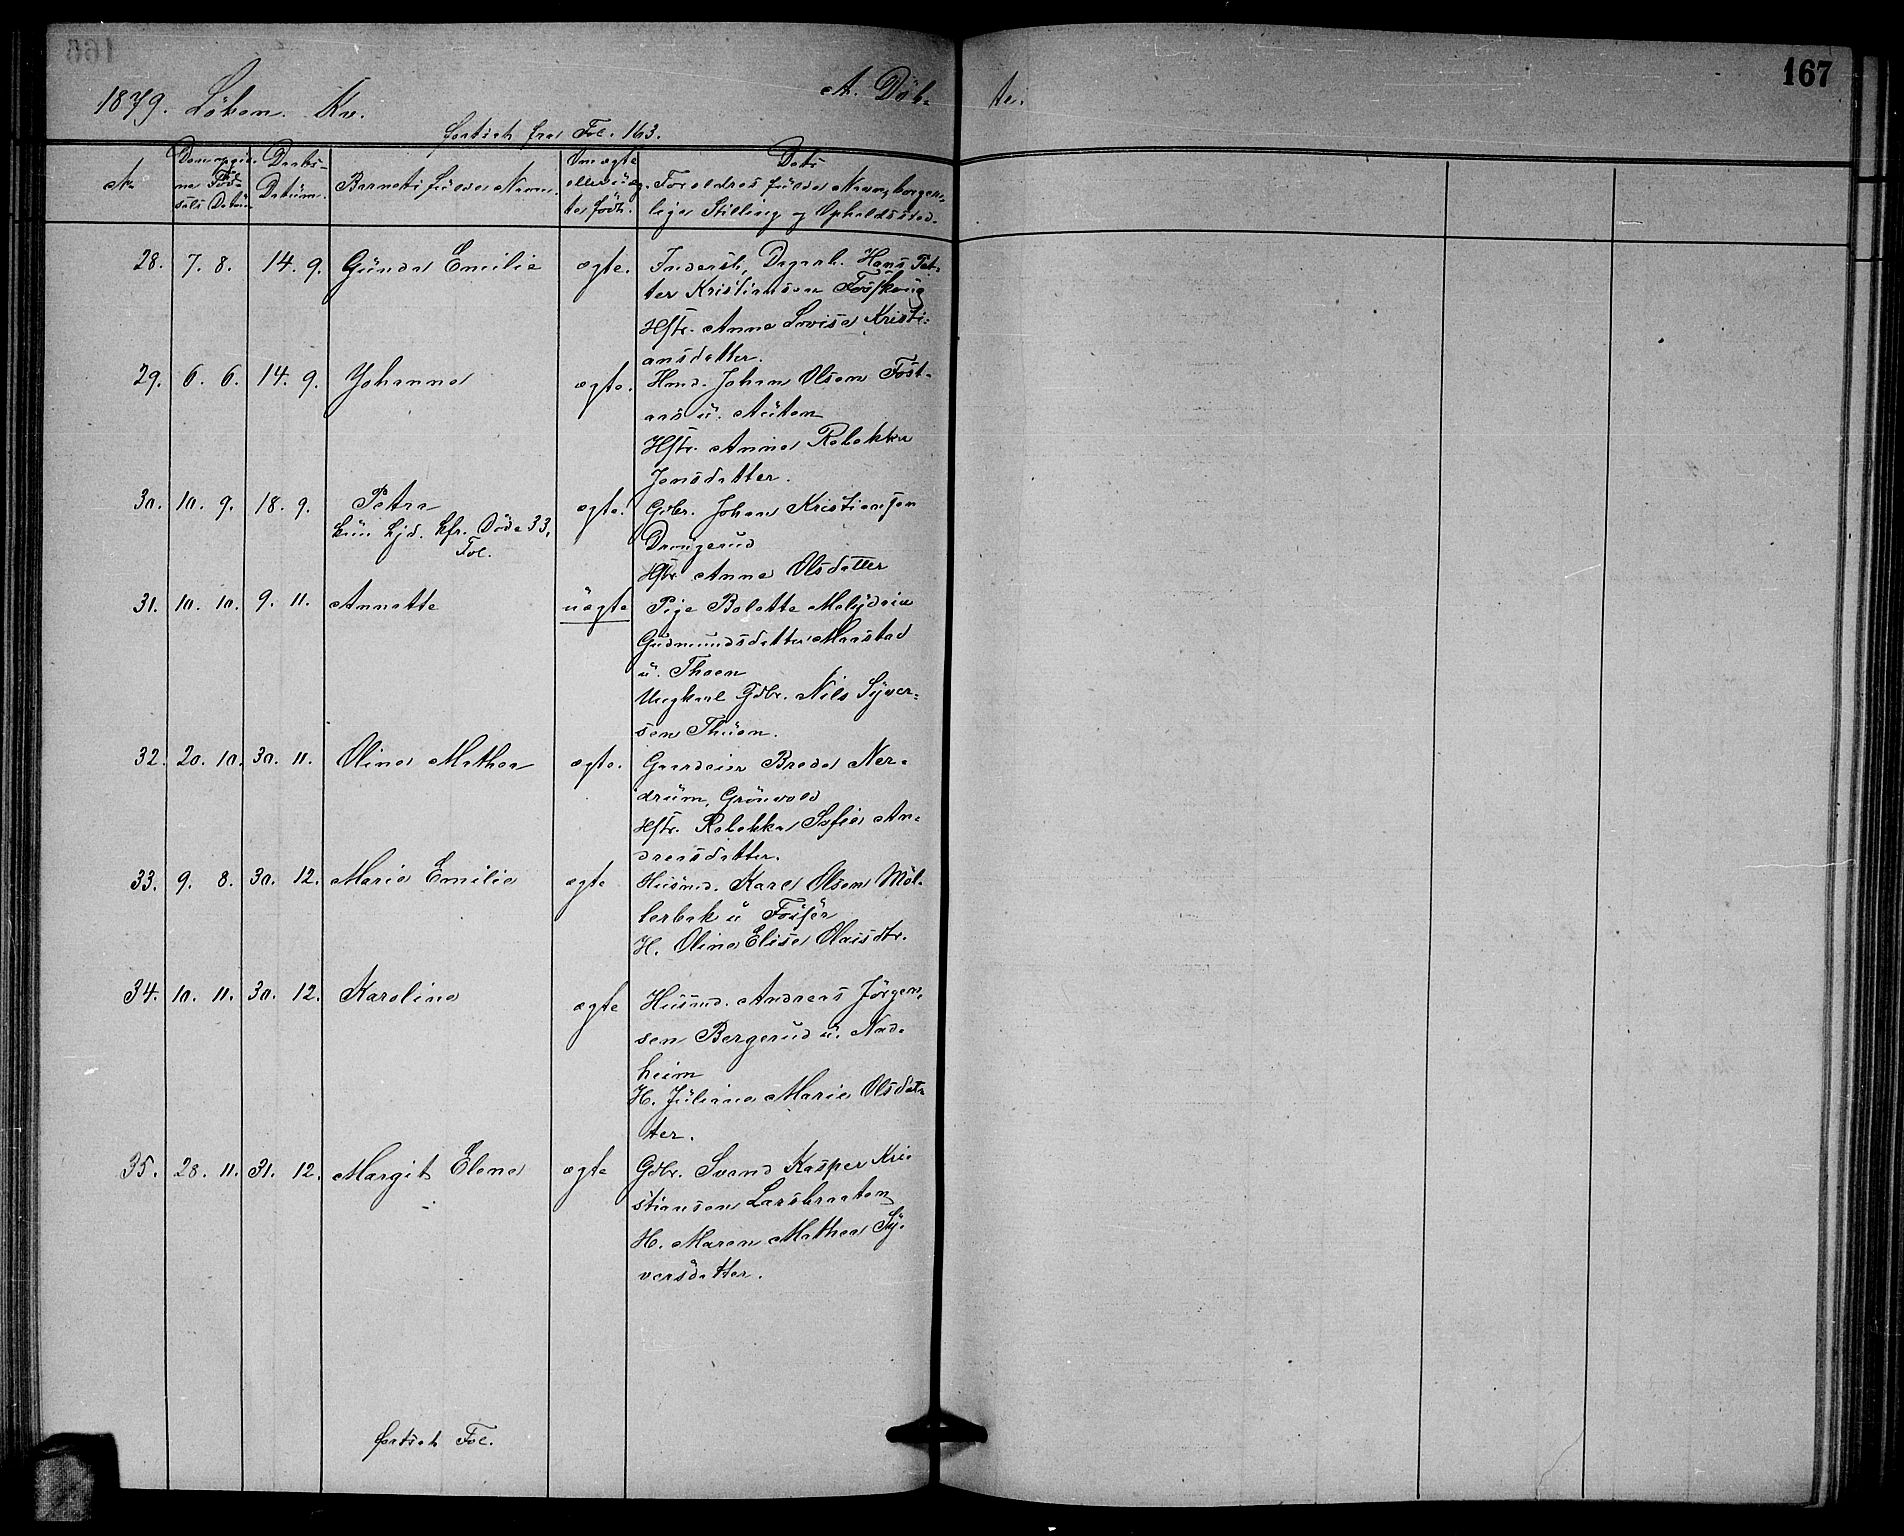 167
1879. Löken. Kv. A. Döb- te.
fortsat fra Fol. 163.
No
Daabs-
Datum.
Barnets fulde Navn.
Om ægte
eller uæg-
te født.
Dets
Forældres fulde Navn, borger-
lige Stilling og Opholdssted.
28. 7. 8. 14. 9. Gunda Emilie ægte. Inderst, Dagarb. Hans Pet-
ter Kristiansen
Hstr. Anna Lovisa Kristi-
ansdatter.
29. 6. 6. 14. 9. Johanna ægte. Hmd. Johan Olsen
u.
Hstr. Anna Rebekka
Jensdatter.
30. 10. 9. 18. 9. Petra ægte. Gdbr. Johan Kristiansen
kun hjd. kfr. Döde 33,
Fol.
Drougerud
Hstr Anna Olsdatter
31. 10. 10. 9. 11. Annette uægte Pige Bolette
Gudmundsdatter Maastad
u. Thoen
Ungkarl Gdbr. Nils Syver-
sen Thuen.
32. 20. 10. 30. 11. Oline Mathea ægte. Gaardeier Brede Ner-
drum, Grönvold
Hstr. Rebekka Sofie An-
dreasdatter.
33. 9. 8. 30. 12. Marie Emilie ægte Husmd. Karl Olsen Möl-
lerbek u Fosser
H. Oline Elise Olaisdtr.
34. 10. 11. 30. 12. Karoline ægte Husmd. Andreas Jörgen-
sen Bergerud u. Nad-
heim
H. Juliane Marie Olsdat-
ter.
35. 28. 11. 31. 12. Margit Elene ægte Gdbr. Svend Kasper Kri-
stiansen Larsbraaten
H. Maren Mathea Sy-
versdatter.
fortsat Fol.